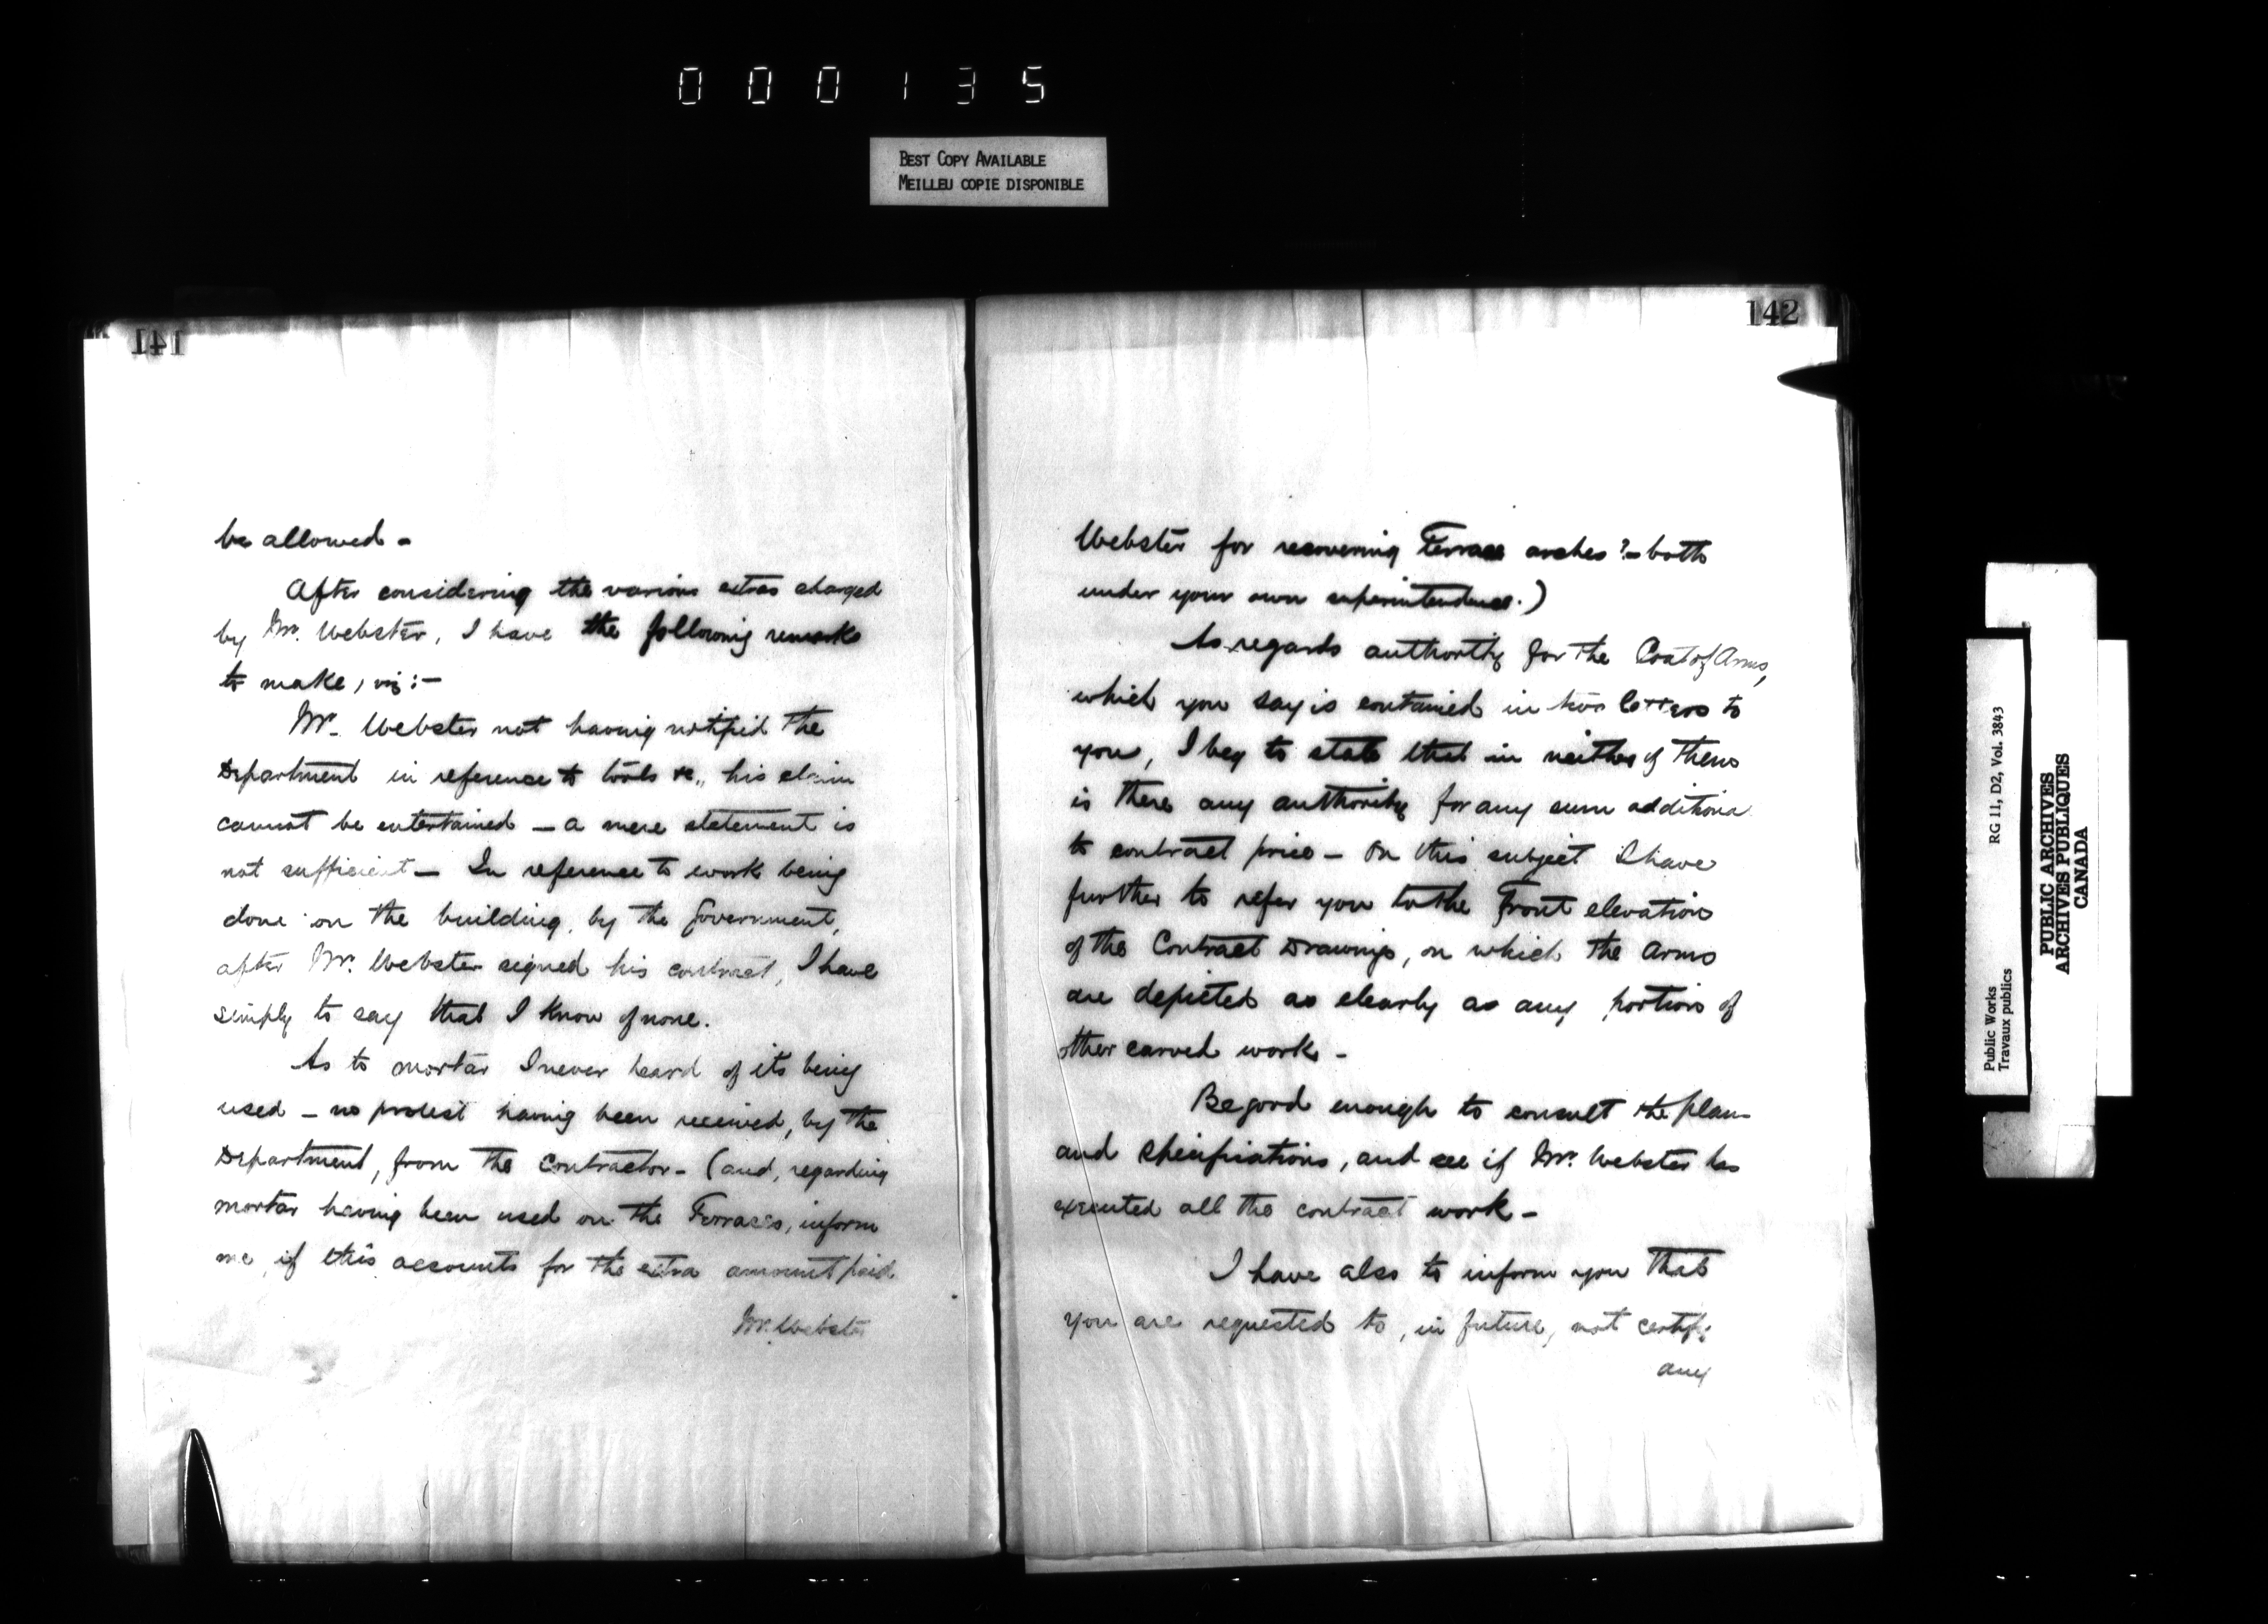 000135
BEST COPY AVAILABLE
MEILLEU COPIE DISPONIBLE
141
be allowed —
After considering the various extras charged
by Mr. Webster, I have the following remarks
to make, viz:—
Mr. Webster not having notified the
Department in reference to tools &c., his claim
cannot be entertained — a mere statement is
not sufficient — In reference to work being
done on the building, by the Government,
after Mr. Webster signed his contract, I have
simply to say that I know of none.
As to mortar I never heard of its being
used — no protest having been received, by the
Department, from the Contractor — (and, regarding
mortar having been used on the Terraces, inform
me, if this accounts for the extra amount paid
Mr. Webster
142
Webster for recovering Terrace arches? — both
under your own superintendence.)
As regards authority for the Coat of Arms,
which you say is contained in two letters to
you, I beg to state that in neither of them
is there any authority for any sum additional
to contract price — On this subject I have
further to refer you to the Front elevation
of the Contract Drawings, on which the Arms
are depicted as clearly as any portion of
other carved work —
Be good enough to consult the plans
and Specifications, and see if Mr. Webster has
executed all the contract work —
I have also to inform you that
you are requested to, in future, not certify
any
Public Works
Travaux publics
RG 11, D2, Vol. 3843
PUBLIC ARCHIVES
ARCHIVES PUBLIQUES
CANADA